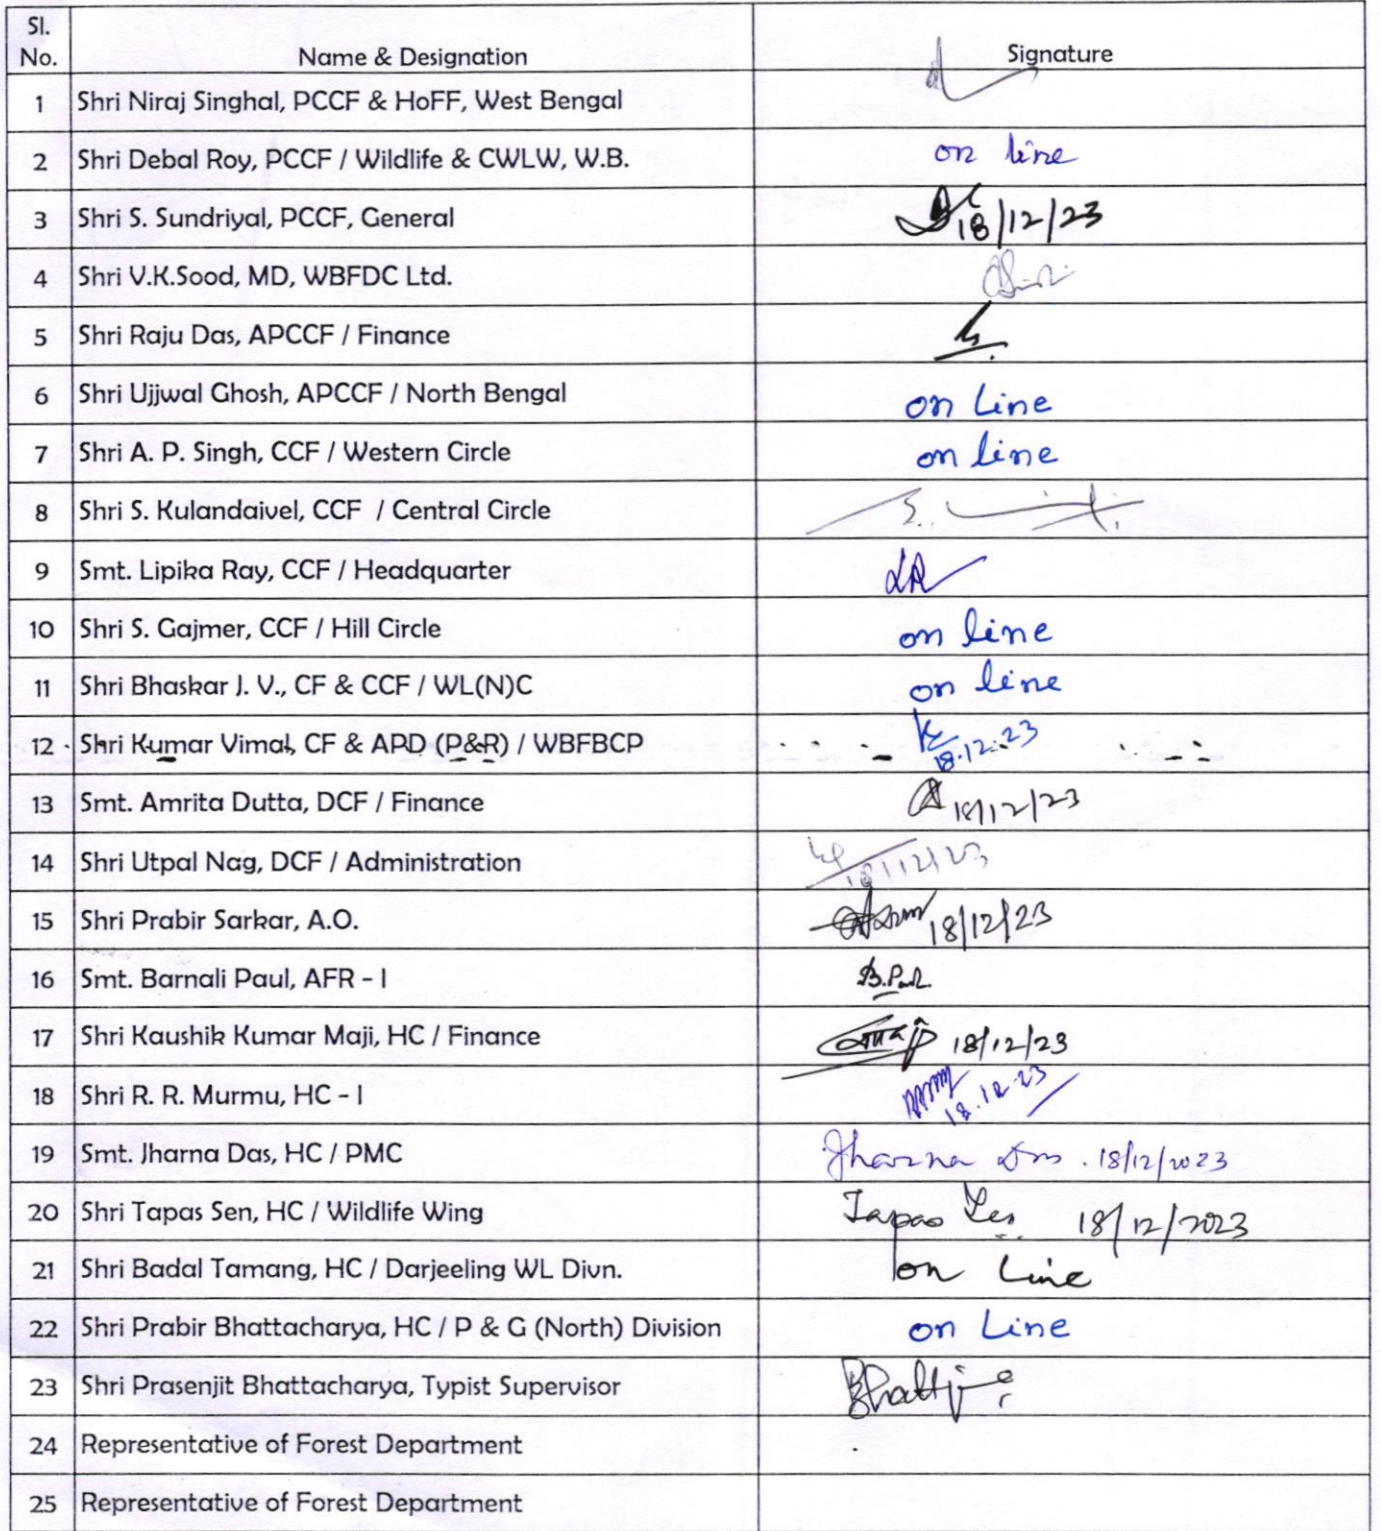 Sl.
No. Name & Designation Signature
1 Shri Niraj Singhal, PCCF & HoFF, West Bengal
2 Shri Debal Roy, PCCF / Wildlife & CWLW, W.B. on line
3 Shri S. Sundriyal, PCCF, General 18/12/23
4 Shri V.K.Sood, MD, WBFDC Ltd.
5 Shri Raju Das, APCCF / Finance
6 Shri Ujjwal Ghosh, APCCF / North Bengal on Line
7 Shri A. P. Singh, CCF / Western Circle on line
8 Shri S. Kulandaivel, CCF / Central Circle
9 Smt. Lipika Ray, CCF / Headquarter LR
10 Shri S. Gajmer, CCF / Hill Circle on line
11 Shri Bhaskar J. V., CF & CCF / WL(N)C on line
12 Shri Kumar Vimal, CF & APD (P&R) / WBFBCP 18.12.23
13 Smt. Amrita Dutta, DCF / Finance 18/12/23
14 Shri Utpal Nag, DCF / Administration 18/12/23
15 Shri Prabir Sarkar, A.O. 18/12/23
16 Smt. Barnali Paul, AFR - I B.Paul
17 Shri Kaushik Kumar Maji, HC / Finance 18/12/23
18 Shri R. R. Murmu, HC - I 18.12.23
19 Smt. Jharna Das, HC / PMC Jharna Das . 18/12/2023
20 Shri Tapas Sen, HC / Wildlife Wing Tapas Sen 18/12/2023
21 Shri Badal Tamang, HC / Darjeeling WL Divn. on Line
22 Shri Prabir Bhattacharya, HC / P & G (North) Division on Line
23 Shri Prasenjit Bhattacharya, Typist Supervisor
24 Representative of Forest Department
25 Representative of Forest Department